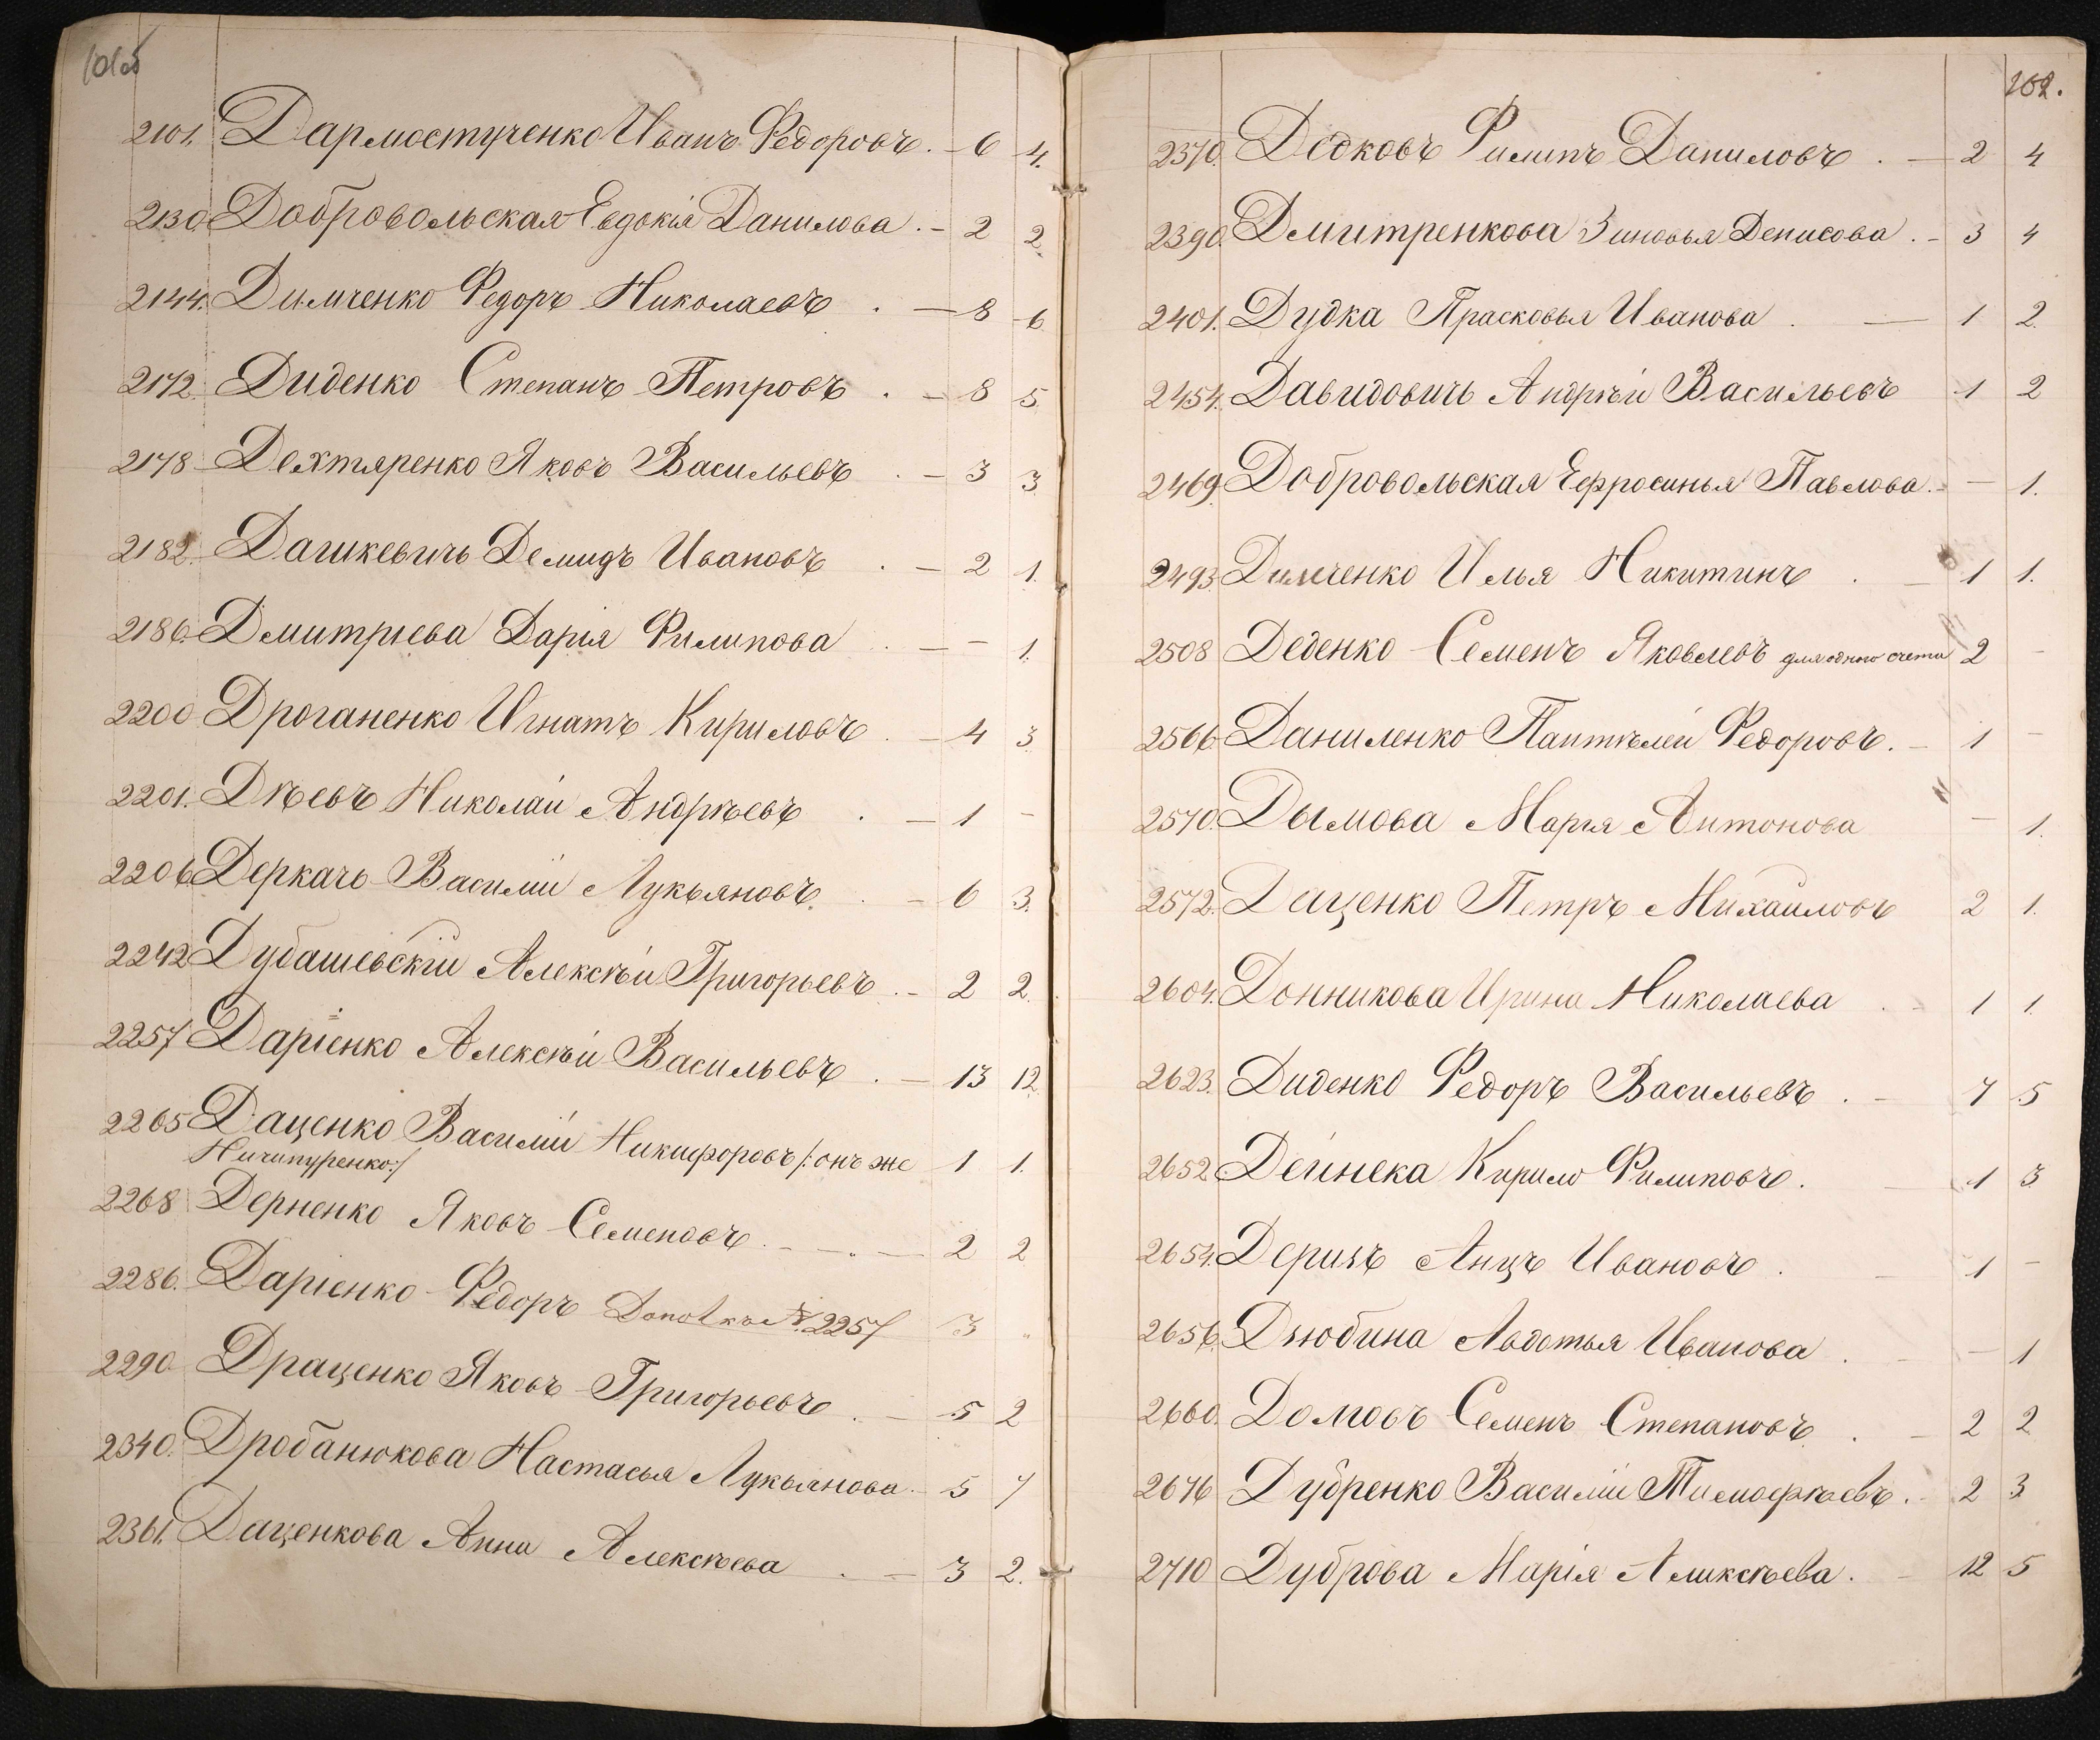 101об
2101. Дармостученко Иванъ Федоровъ. — 6 4.
2130 Добровольская Евдокія Данилова. — 2 2
2144. Димченко Федоръ Николаевъ . — 8 6
2172. Диденко Степанъ Петровъ . — 8 5.
2178 Дехтяренко Яковъ Васильевъ . — 3 3
2182. Дашкевичъ Демидъ Ивановъ . — 2 1.
2186. Дмитріева Дарія Филипова . — — 1.
2200 Дроганенко Игнатъ Кириловъ . — 4 3.
2201. Дѣевъ Николай Андрѣевъ . — 1 —
2206 Деркачъ Василій Лукьяновъ . — 6 3.
2242 Дубашевскій Алексѣй Григорьевъ . — 2 2.
2257 Даріенко Алексѣй Васильевъ . — 13 12.
2265 Даценко Василій Никифоровъ /: онъ же 1 1.
Ничипуренко :/
2268 Дерненко Яковъ Семеновъ . — . — 2 2
2286. Даріенко Федоръ № 2257 3 "
2290. Драценко Яковъ Григорьевъ . — 5 2
2340. Дробанюкова Настасья Лукьянова. 5 7
2361. Даценкова Анна Алексѣева . — 3 2.
102.
2370. Дедковъ Филипъ Даниловъ . — 2 4
2390. Дмитренкова Зиновья Денисова . — 3 4
2401. Дудка Прасковья Иванова . — 1 2.
2454. Давидовичъ Андрѣй Васильевъ 1 2
2469. Добровольская Ефросинья Павлова. — 1.
2493. Димченко Илья Никитинъ . — 1 1.
2508 Деденко Семенъ Яковлевъ для одного счета 2 —
2566 Даниленко Пантѣлей Федоровъ. — 1 —
2570. Дымова Марья Антонова — 1.
2572. Даценко Петръ Михайловъ 2 1.
2604. Донникова Ирина Николаева . - 1 1.
2623. Диденко Федоръ Васильевъ . — 7 5
2652. Дейнека Кирило Филиповъ . — 1 3
2654. Деризъ Анцъ Ивановъ . — 1 —
2656. Дзюбина Авдотья Иванова . — — 1
2660. Домовъ Семенъ Степановъ . — 2 2
2676 Дубренко Василій Тимофѣевъ . - 2 3
2710 Дуброва Марія Аликсѣева . — 12 5